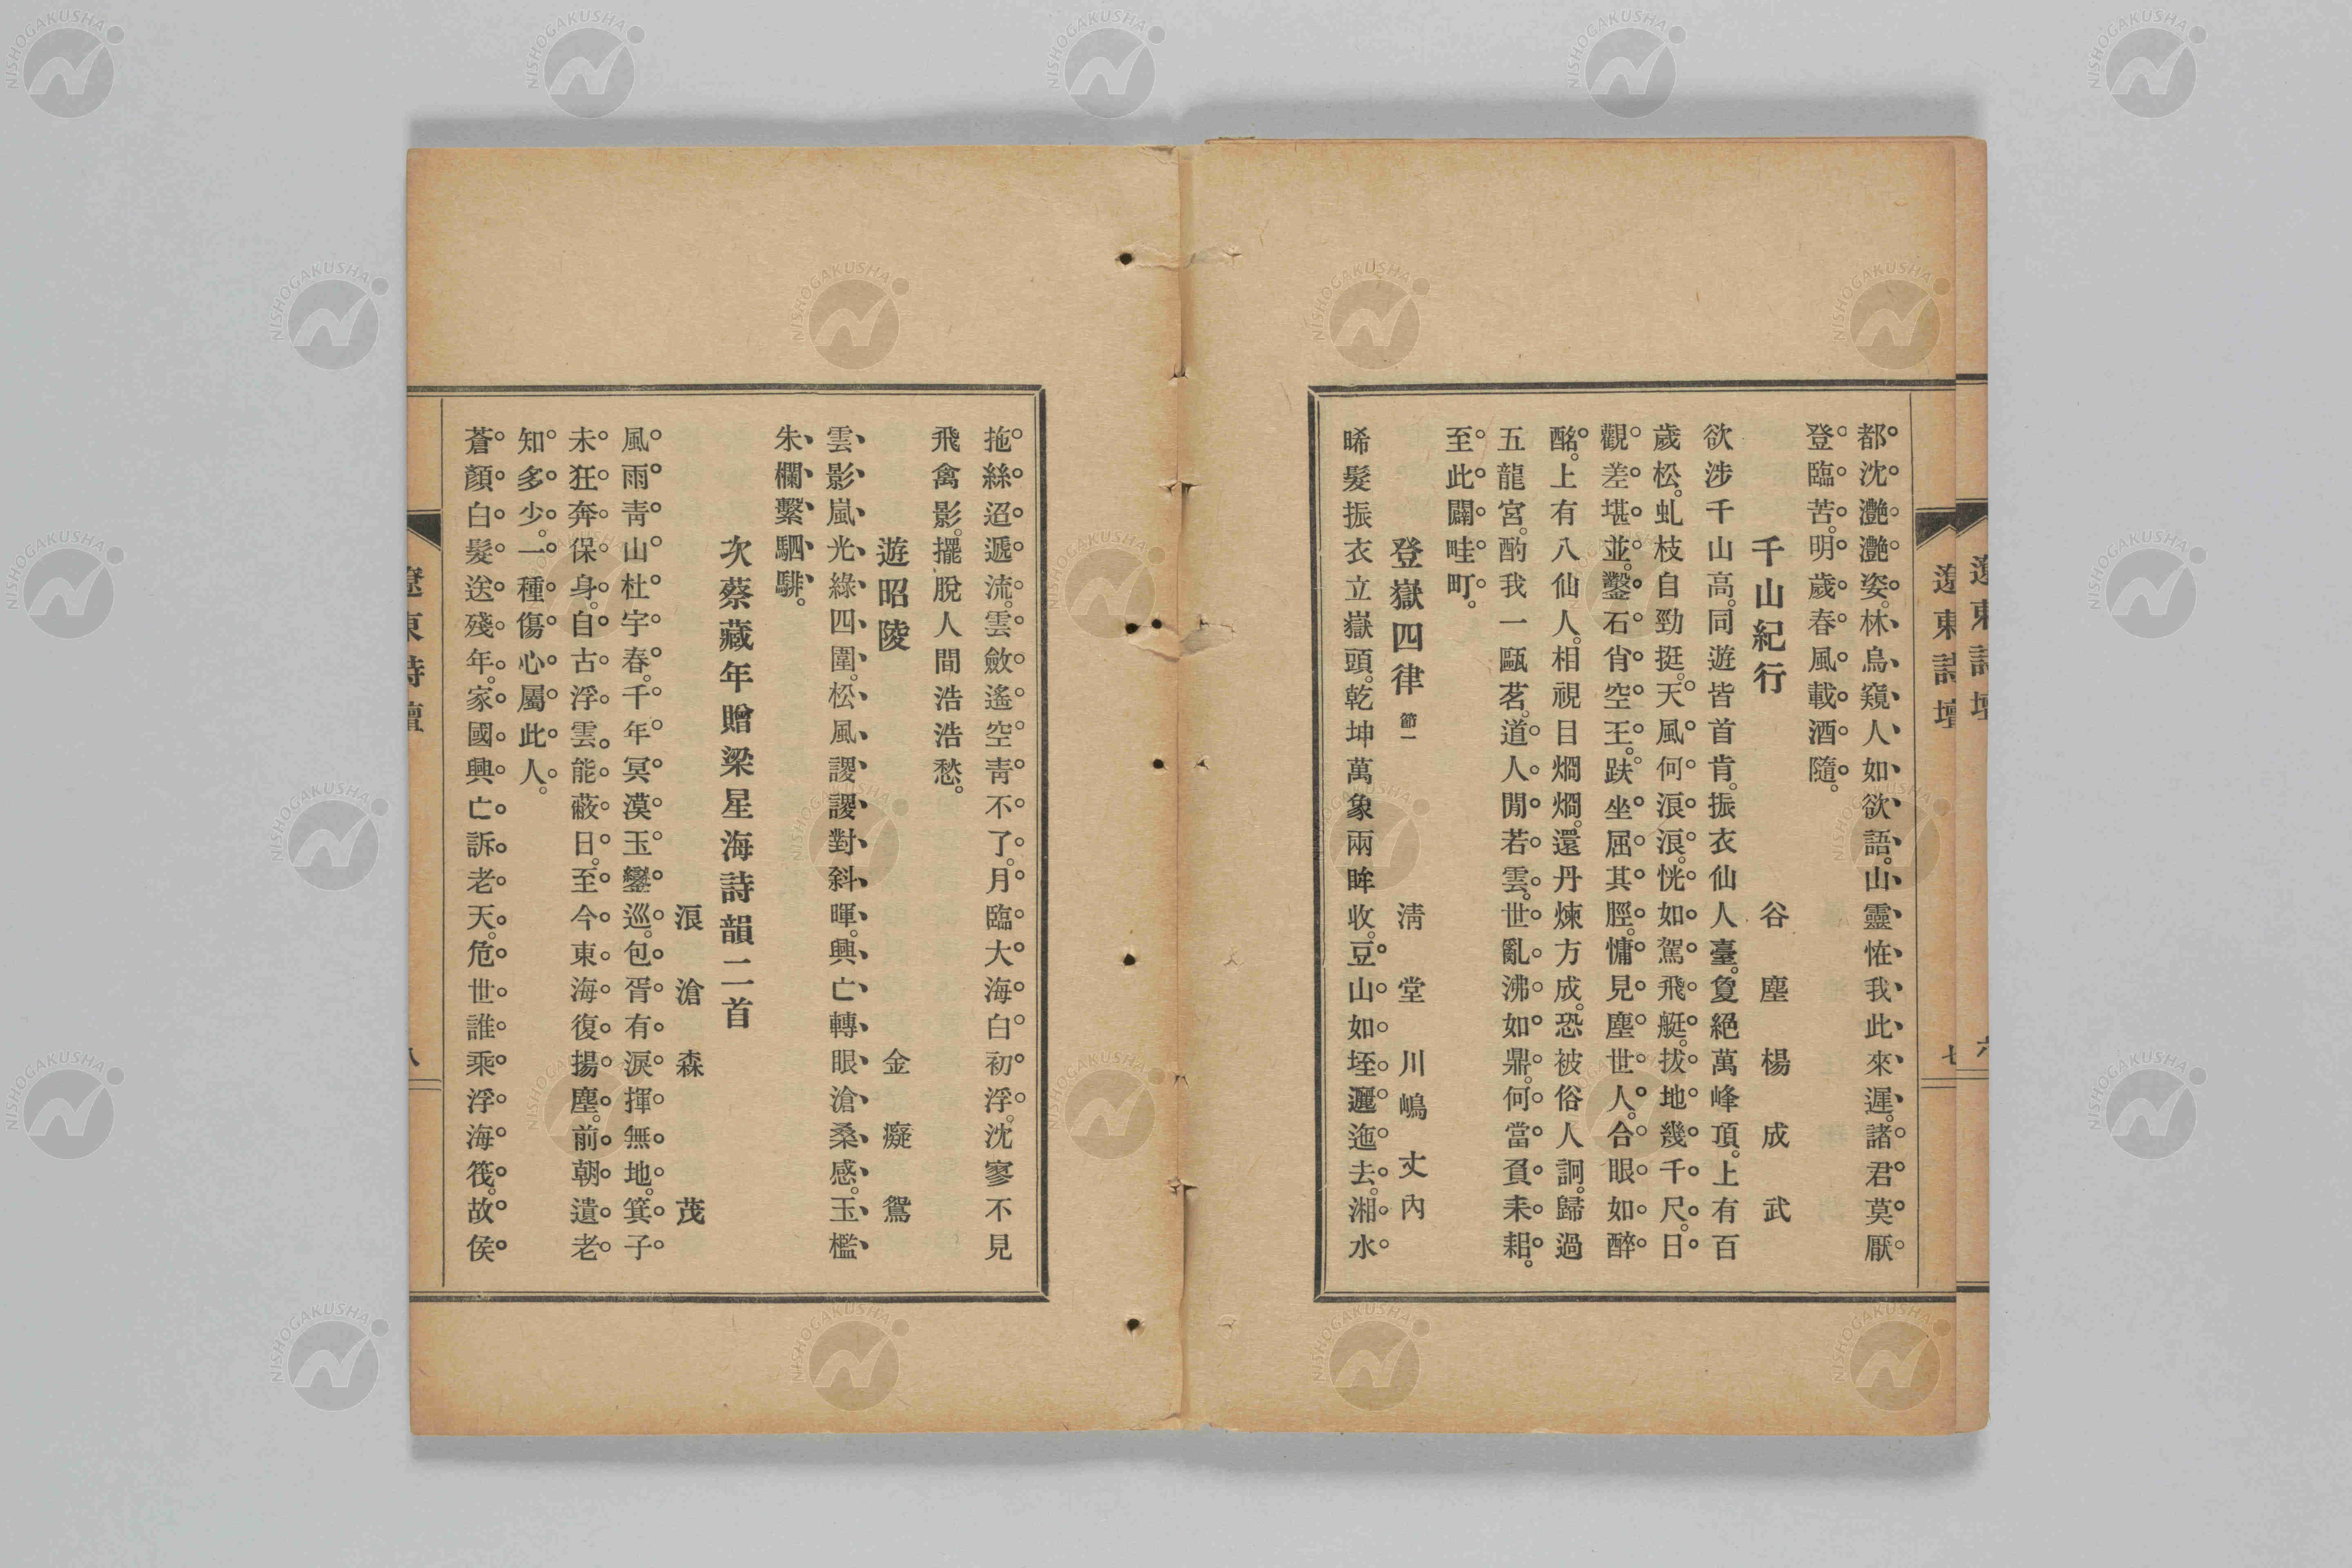 遼東詩壇
六
遼東詩壇
七
都沈灧灧姿。林鳥窺人如欲語。山靈恠我此來遲。諸君莫厭
登臨苦。明歲春風載酒隨。
千山紀行
谷塵楊成武
欲涉千山高。同遊皆首肯。振衣仙人臺。敻絕萬峰頂。上有百
歲松。虬枝自勁挺。天風何浪浪。恍如駕飛艇。拔地幾千尺。日
觀差堪並。鑿石省空王。趺坐屈其脛。慵見塵世人。合眼如醉
酩。上有八仙人。相視目烱烱。還丹煉方成。恐被俗人詗。歸過
五龍宮。酌我一甌茗。道人閒若雲。世亂沸如鼎。何當負耒耜。
至此闢畦町。
登嶽四律 節一
淸堂川嶋丈內
晞髮振衣立嶽頭。乾坤萬象兩眸收。豆山如垤邐迤去。湘水
拖絲迢遞流。雲斂遙空靑不了。月臨大海白初浮。沈寥不見
飛禽影。擺脫人間浩浩愁。
遊昭陵
金癡鴛
雲影嵐光綠四圍。松風謖謖對斜暉。興亡轉眼滄桑感。玉檻
朱欄繫駟騑。
次蔡藏年贈梁星海詩韻二首
浪滄森茂
風雨靑山杜宇春。千年冥漠玉鑾巡。包胥有淚揮無地。箕子
未狂奔保身。自古浮雲能蔽日。至今東海復揚塵。前朝遺老
知多少。一種傷心屬此人。
蒼顏白髮送殘年。家國興亡訴老天。危世誰乘浮海筏。故侯
遼東詩壇
八
NISHOGAKUSHA